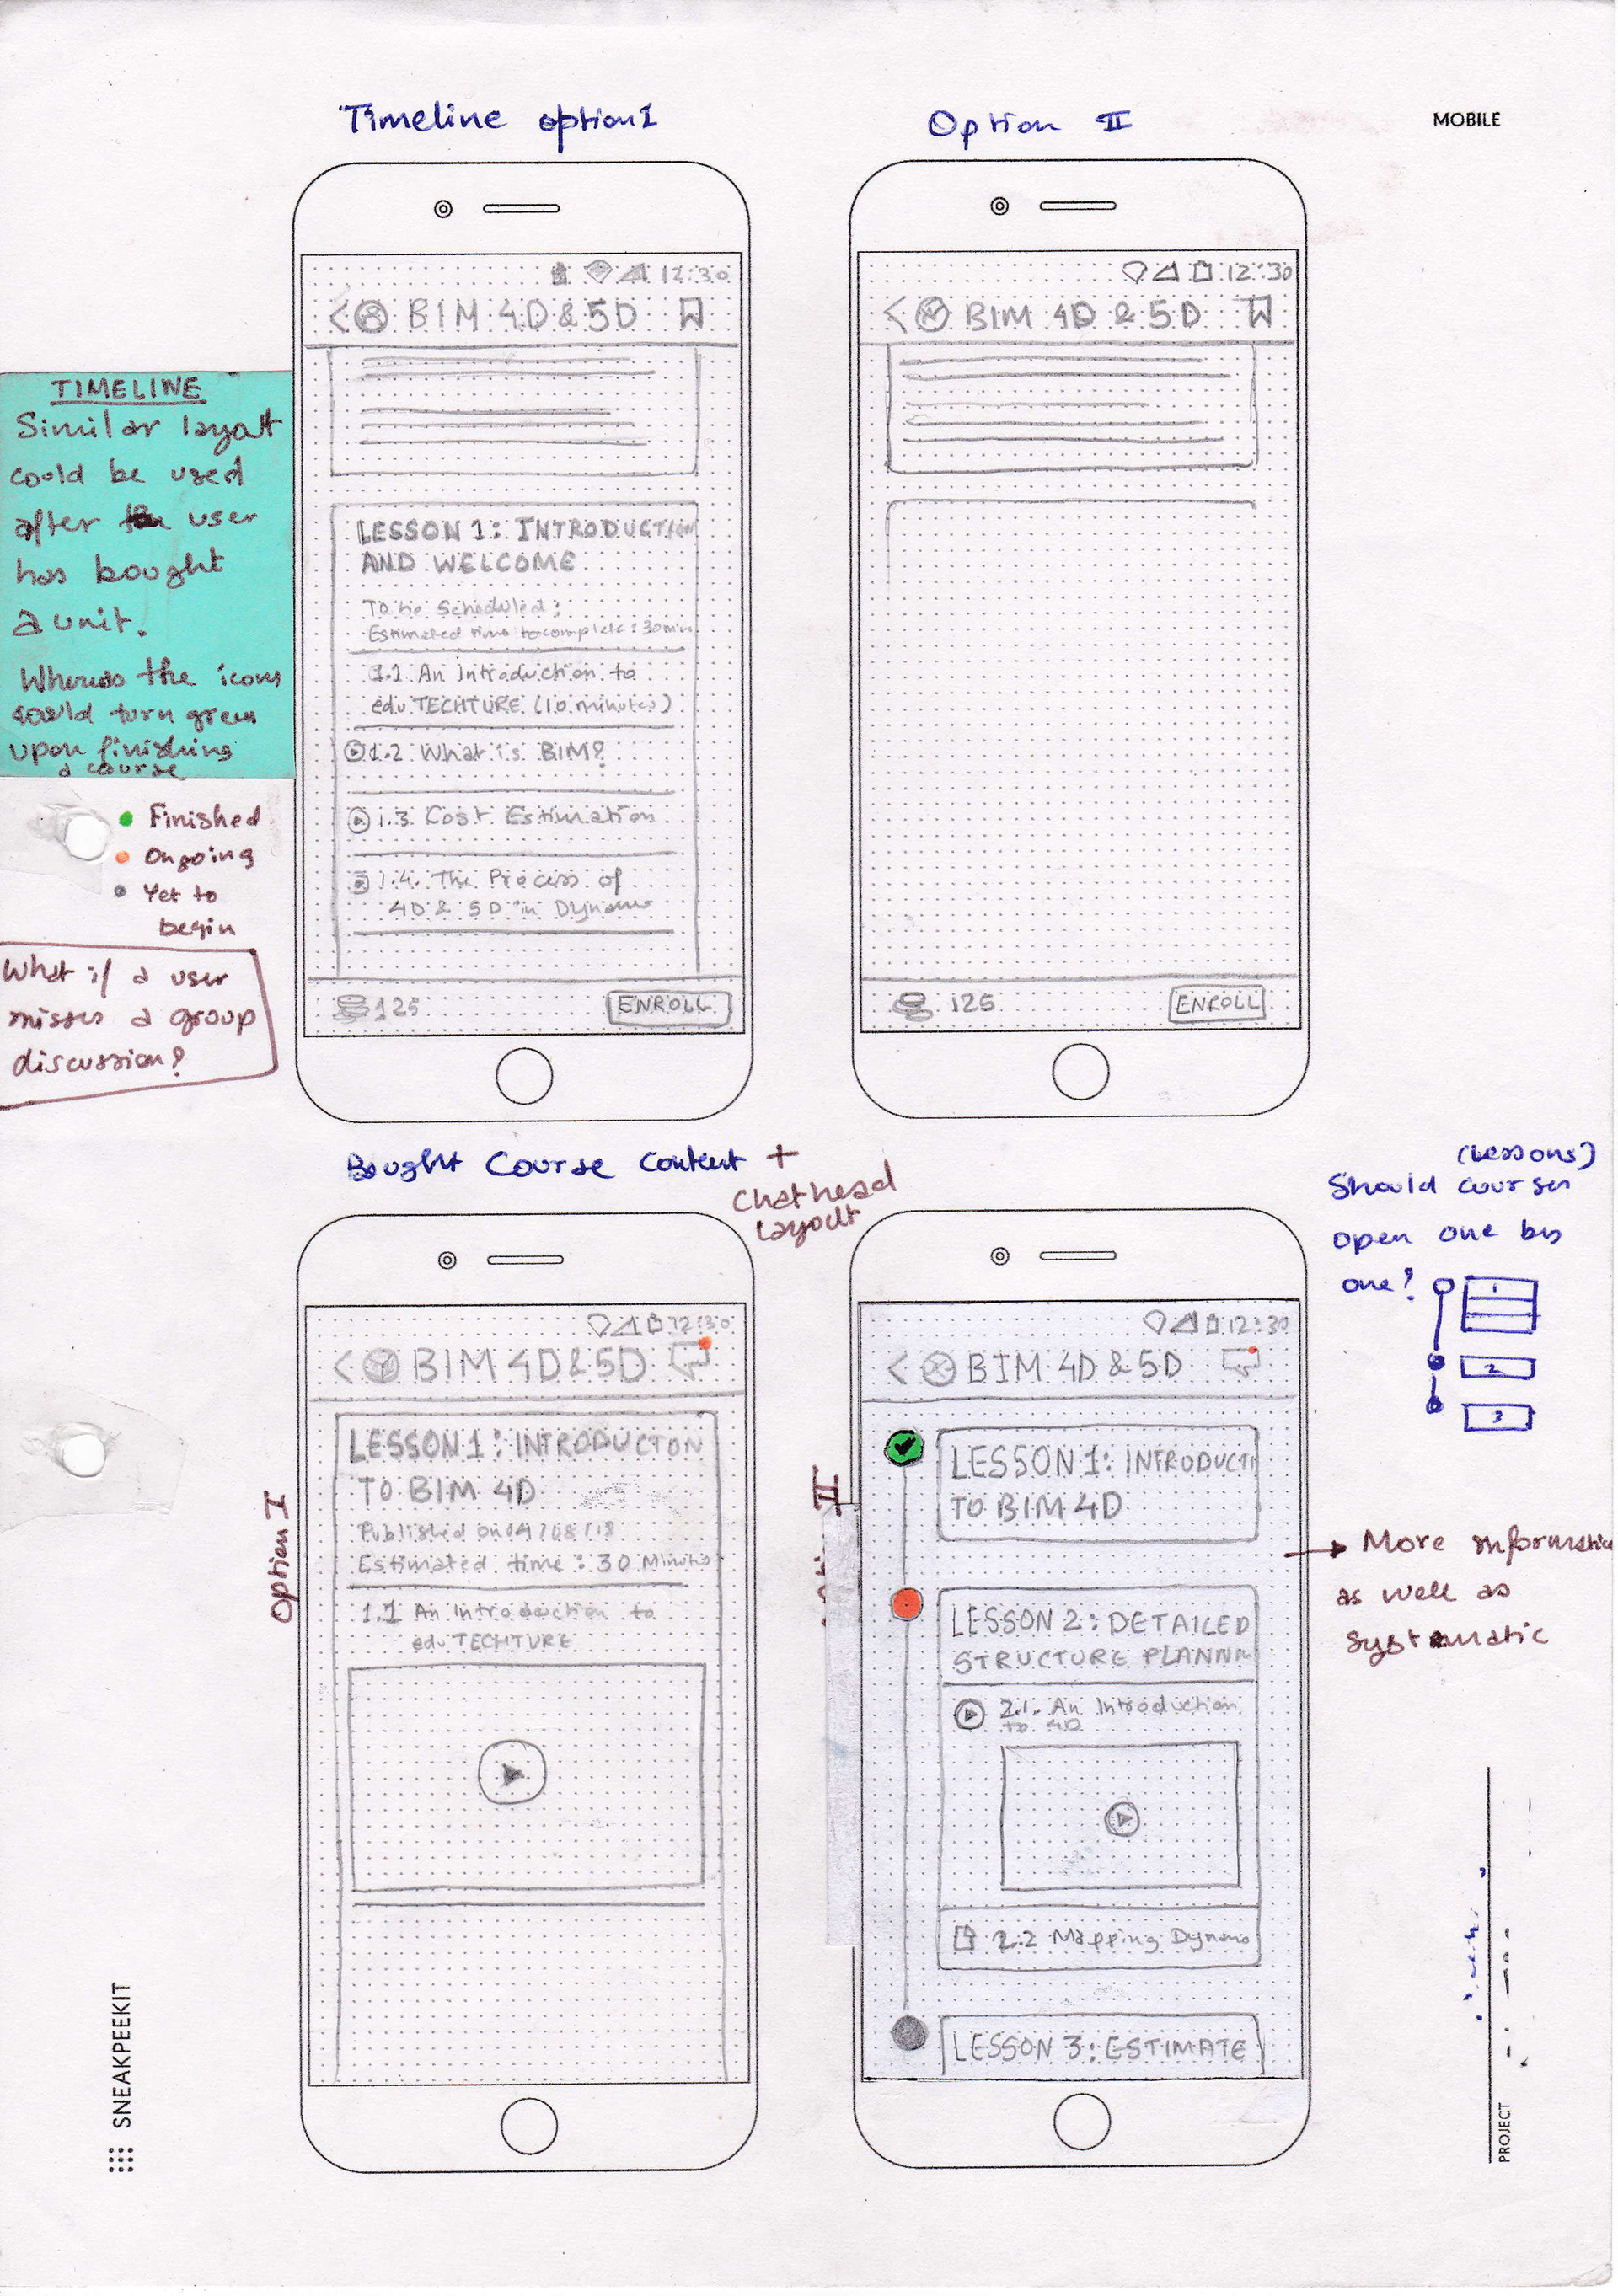 Timeline option I
Option II
MOBILE
12:30
BIM 4D & 5D
LESSON 1: INTRODUCTION
AND WELCOME
To be Scheduled:
Estimated time to complete: 30 min
1.1 An Introduction to
edu TECHTURE (10 minutes)
1.2 What is BIM?
1.3. Cost Estimation
1.4. The Process of
4D & 5D in Dynamo
125
ENROLL
12:30
BIM 4D & 5D
125
ENROLL
TIMELINE
Similar layout
could be used
after user
has bought
a unit.
Whereas the icons
would turn green
upon finishing
a course
Finished
Ongoing
Yet to
begin
What if a user
misses a group
discussion?
Bought Course Content +
Chathead
Layout
Option I
12:30
BIM 4D & 5D
LESSON 1: INTRODUCTON
TO BIM 4D
Published on 04/08/18
Estimated time: 30 Minutes
1.1 An Introduction to
edu TECHTURE
II
12:30
BIM 4D & 5D
LESSON 1: INTRODUCTI
TO BIM 4D
LESSON 2: DETAILED
STRUCTURE PLANNIN
2.1. An Introduction
to 4D
2.2 Mapping Dynamo
LESSON 3: ESTIMATE
(Lessons)
Should courses
open one by
one?
1
2
3
More information
as well as
systematic
SNEAKPEEKIT
PROJECT